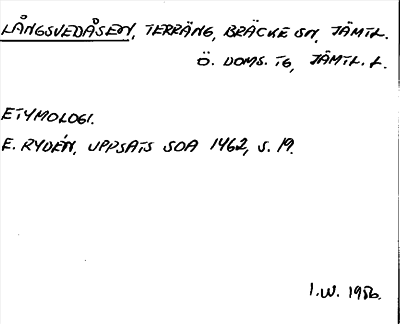 LÅNGSVEDÅSEN, TERRÄNG, BRÄCKE SN, JÄMTL.
Ö. DOMS. TG, JÄMTL. L.
ETYMOLOGI.
E. RYDÉN, UPPSATS SOA 1462, S. 19.
I.W. 1986.